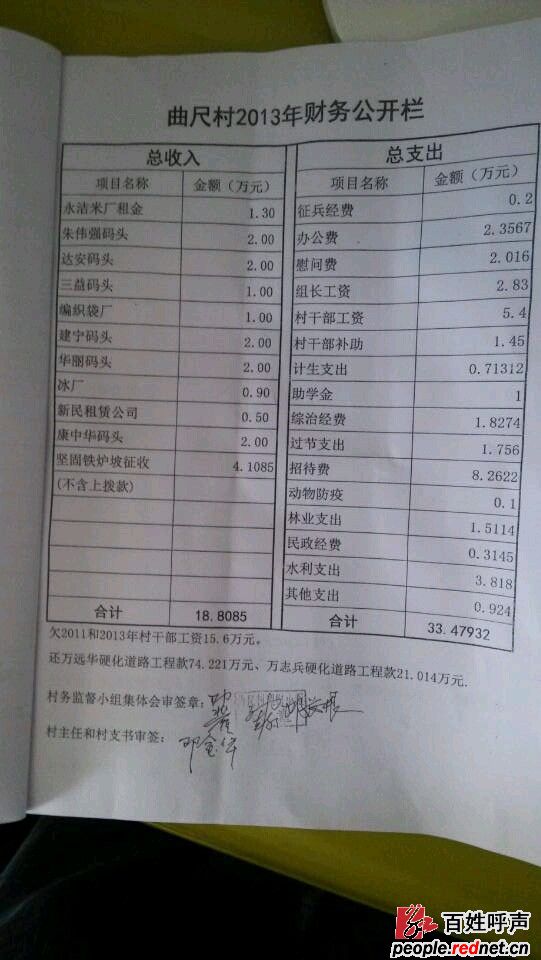 曲尺村2013年财务公开栏
总收入 总支出
项目名称 金额（万元） 项目名称 金额（万元）
永洁米厂租金 1.30 征兵经费 0.2
朱伟强码头 2.00 办公费 2.3567
达安码头 2.00 慰问费 2.016
三益码头 1.00 组长工资 2.83
编织袋厂 1.00 村干部工资 5.4
建宁码头 2.00 村干部补助 1.45
华丽码头 2.00 计生支出 0.71312
冰厂 0.90 助学金 1
新民租赁公司 0.50 综治经费 1.8274
康中华码头 2.00 过节支出 1.756
坚固铁炉坡征收 4.1085 招待费 8.2622
(不含上拨款) 动物防疫 0.1
林业支出 1.5114
民政经费 0.3145
水利支出 3.818
其他支出 0.924
合计 18.8085 合计 33.47932
欠2011和2013年村干部工资15.6万元。
还万远华硬化道路工程款74.221万元、万志兵硬化道路工程款21.014万元.
村务监督小组集体会审签章：
村主任和村支书审签：
百姓呼声
people.rednet.cn